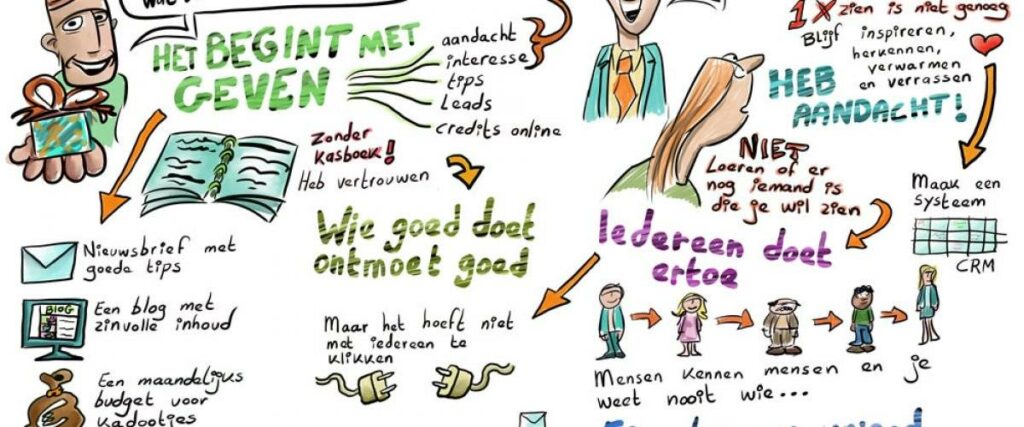 HET BEGINT MET
GEVEN
aandacht
interesse
tips
Leads
credits online
Zonder
kasboek!
Heb vertrouwen
Nieuwsbrief met
goede tips
BLOG
Een blog met
zinvolle inhoud
Een maandelijks
budget voor
kadootjes
Wie goed doet
ontmoet goed
Maar het hoeft niet
met iedereen te
klikken
1 X zien is niet genoeg
Blijf inspireren,
herkennen,
verwarmen
en verrassen
HEB
AANDACHT!
NIET
Loeren of er
nog iemand is
die je wil zien
Maak een
systeem
CRM
Iedereen doet
ertoe
Mensen kennen mensen en je
weet nooit wie...